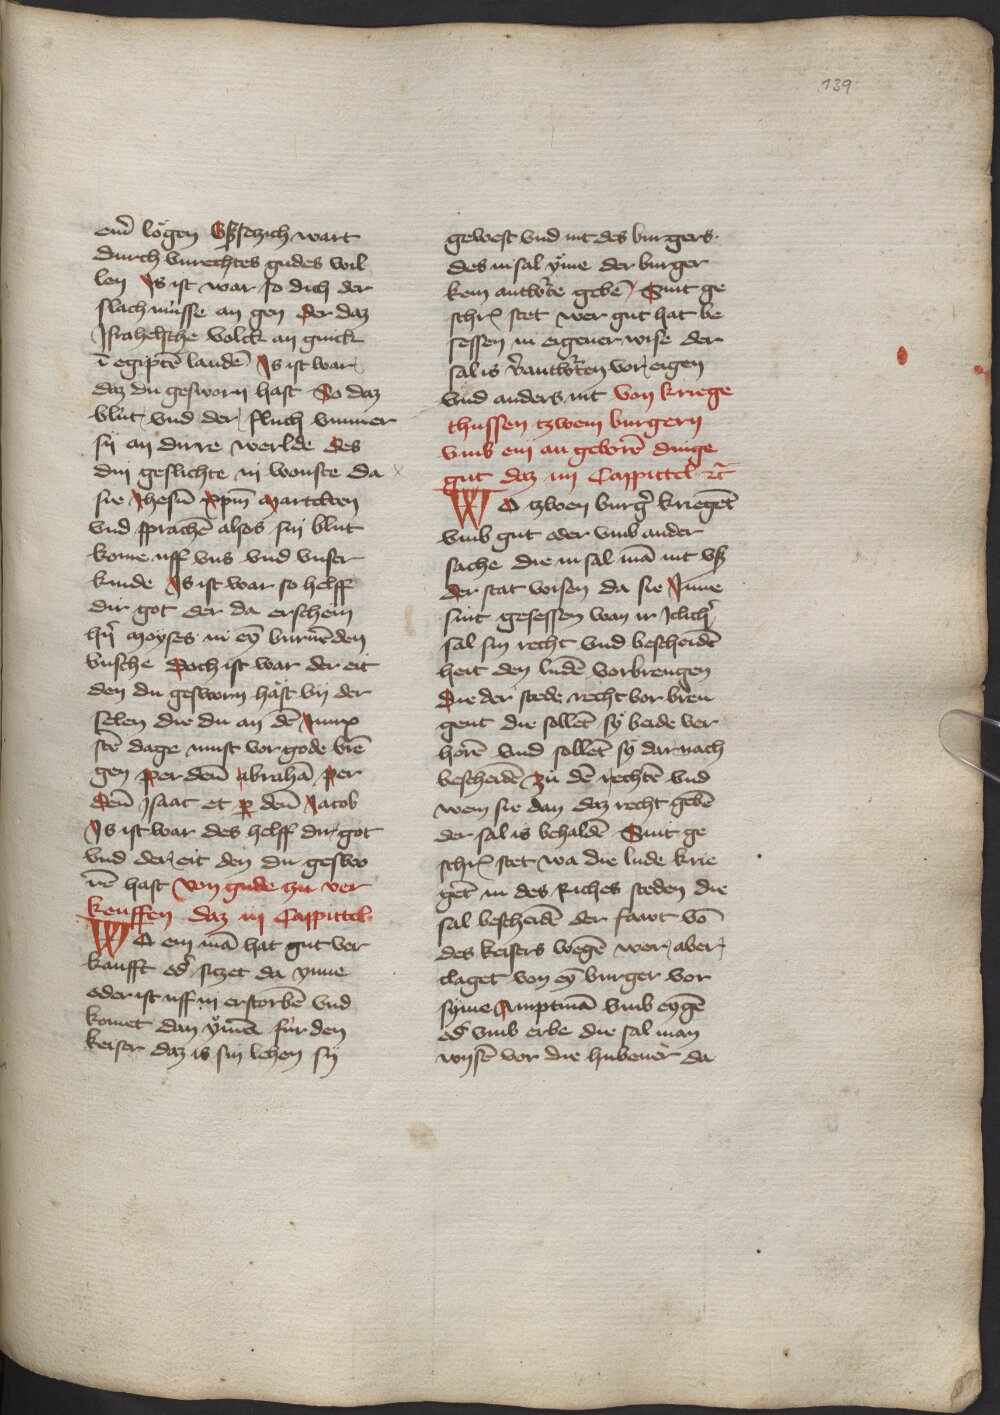 139
em̄ lögen Vßsetzich wart
durch vnrechtes gudes wil
len Js ist war so dich der
slach müsse an gen der daz
Jsrahelsche volck an guick
ī egiptē landē Js ist war
daz du gesworn hast So daz
blut vnd der fluch vmmer
sij an dirre werlde des
din geslichte in wonste da
sie Jhesū xp̄m martelten
vnd sprachē alsos sin blut
kome uff vns vnd vnser
kinde Js ist war so helff
dir got der da erschein
hr̄ moyses in eȳ burnēden
busche Doch ist war der eit
den du gesworn hast bij der
selen die du an dē Jungx
stē dage must vor gode brē
gen per deū abrahā per
deū Jsaac et ꝑ deū Jacob
Js ist war des helff dir got
vnd der eit den du geswo
rē hast von gude zu ver
keuffen daz iij Cappittel
WO ein mā hat gut ver
kaufft od̓ sitzet da ynne
oder ist uff in erstorbē vnd
komet dan ymēt für den
keiser daz is sin lehen sij
gewest vnd nit des burgers
des in sal yme der burger
kein antw̓te gebē Sint ge
schr̄ stet wer gut hat be
sessen in eigener wise der
sal is v̓antw̓ten vor eigen
vnd anders nit von kriege
thussen tzwein burgern
vmb ein an geborē dinge
gut daz iiij Cappittel ꝛc̄
WO tzwen burg̓ kriegēt
vmb gut oder vmb ander
sache die in sal mā nit vß
der stat wisen da sie Jnne
sint gesessen wan ir Jclich̓
sal sin recht vnd bescheidē
heit den ludē vorbrengen
Die der stede recht vor bren
gent die sollēt sy beide ver
horē vnd sollēt sy dar nach
bescheidē zu dē rechtē vnd
wem sie dan daz recht gebē
der sal is behaldē Sint ge
schr̄ stet wa die lude krie
gēt in des Riches steden die
sal bescheidē der fawt vō
des keisers wegē wer aber
claget von eȳ burger vor
syme Amptmā vmb eygē
od̓ vmb erbe die sal man
wysē vor die hubener da